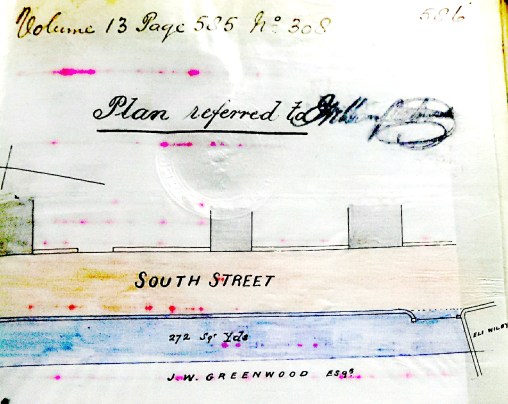 Volume 13 Page 585 No 308
586
Plan referred to
SOUTH STREET
272 Sqr Yds
ELI WILBY
J.W. GREENWOOD Esqr.